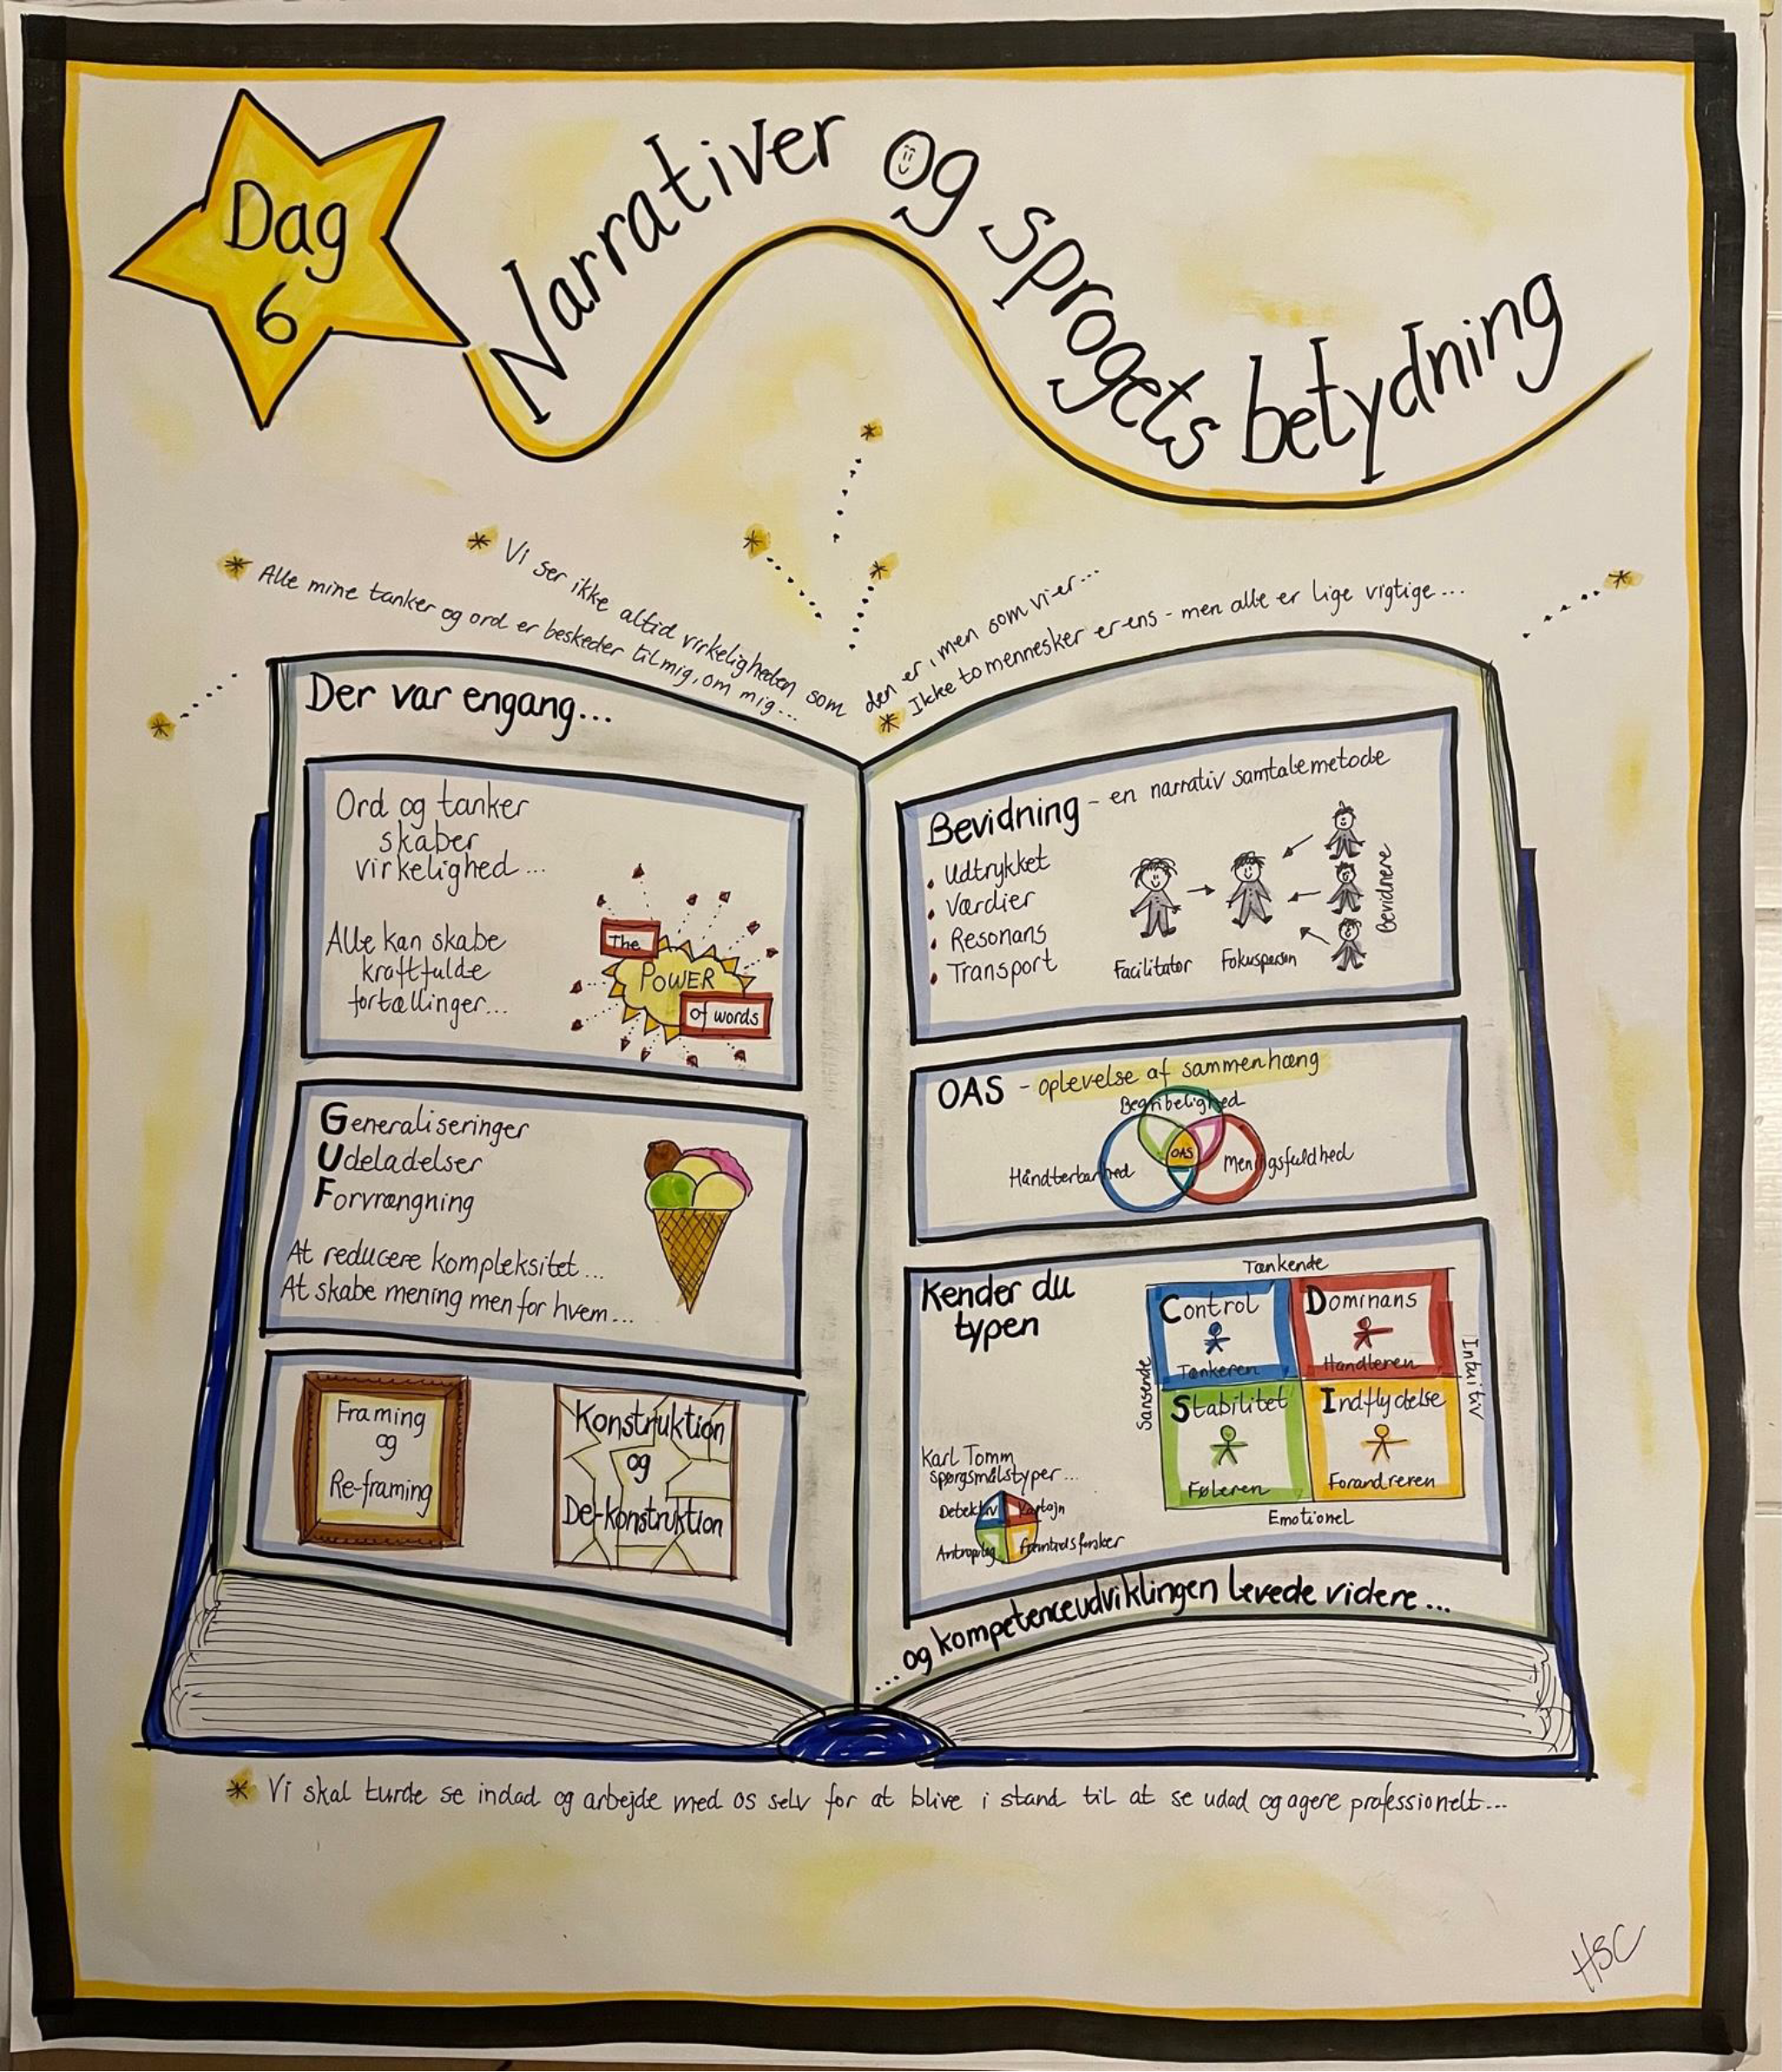 Dag
6
Narrativer og sprogets betydning
* Vi ser ikke altid virkeligheden som den er, men som vi er...
* Alle mine tanker og ord er beskeder til mig, om mig...
* Ikke to mennesker er ens - men alle er lige vigtige...
Der var engang...
Ord og tanker
skaber
virkelighed...
Alle kan skabe
kraftfulde
fortællinger...
The
POWER
of words
Generaliseringer
Udeladelser
Forvrængning
At reducere kompleksitet...
At skabe mening men for hvem...
Framing
og
Re-framing
Konstruktion
og
De-konstruktion
Bevidning - en narrativ samtalemetode
• Udtrykket
• Værdier
• Resonans
• Transport
Facilitator
Fokusperson
Bevidnere
OAS - oplevelse af sammenhæng
Begribelighed
Håndterbarhed
OAS
Meningsfuldhed
Kender du
typen
Tænkende
Control
Tænkeren
Dominans
Handleren
Sansende
Intuitiv
Stabilitet
Føleren
Indflydelse
Forandreren
Emotionel
Karl Tomm
spørgsmålstyper...
Detektiv
Kaptajn
Antropolog
Fremtidsforsker
...og kompetenceudviklingen levede videre...
* Vi skal turde se indad og arbejde med os selv for at blive i stand til at se udad og agere professionelt...
HSC